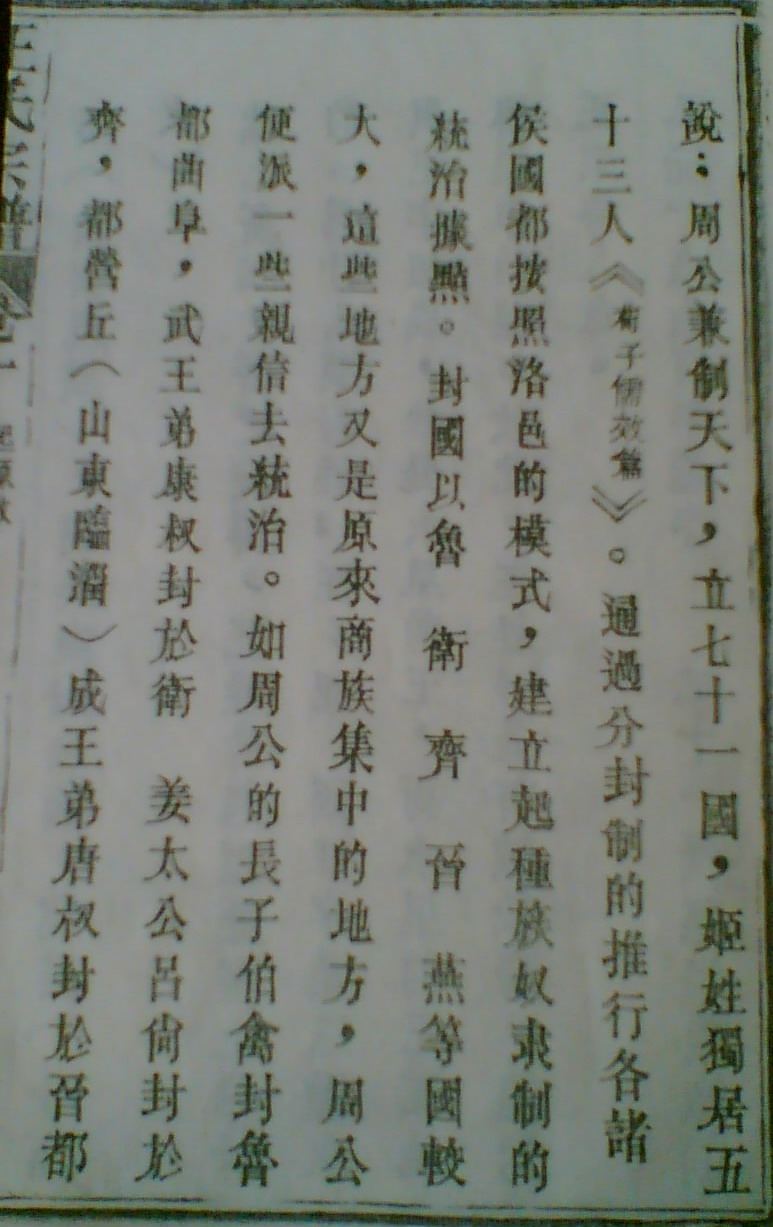 說：周公兼制天下，立七十一國，姬姓獨居五
十三人《荀子儒效篇》。通過分封制的推行各諸
侯國都按照洛邑的模式，建立起種族奴隶制的
統治據點。封國以魯 衛 齊 晉 燕等國較
大，這些地方又是原來商族集中的地方，周公
便派一些親信去統治。如周公的長子伯禽封魯
都曲阜，武王弟康叔封於衛 姜太公呂尙封於
齊，都營丘（山東臨淄）成王弟唐叔封於晉都
王氏宗譜 卷一